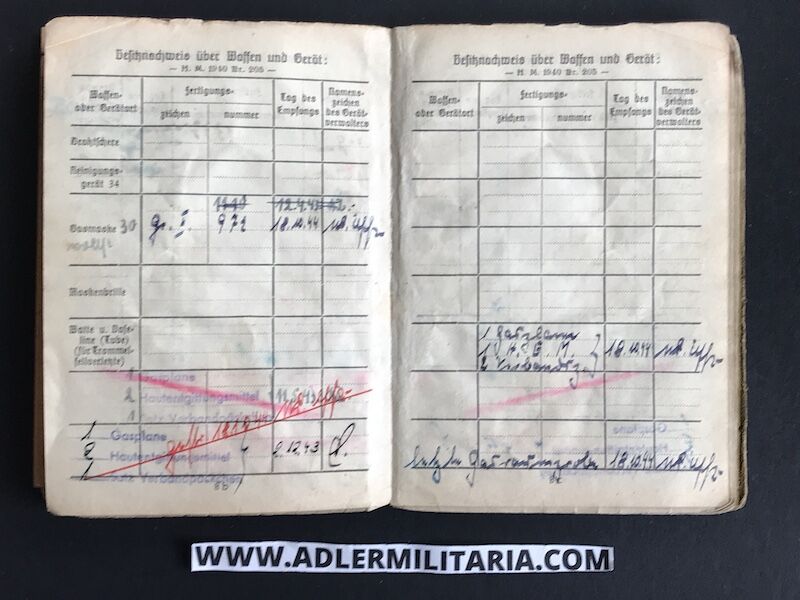 Besitznachweis über Waffen und Gerät:
— H. M. 1940 Nr. 205 —
Waffen-
oder Gerätart
Fertigungs-
zeichen
nummer
Tag des
Empfangs
Namens-
zeichen
des Gerät-
verwalters
Drahtschere
Reinigungs-
gerät 34
12.4.43
Gasmaske 30
Gr. II
972
18.10.44
Uffz
Maskenbrille
Watte u. Vase-
line (Tube)
(für Trommel-
fellverletzte)
1 Gasplane
2 Hautentgiftungsmittel
1 Satz Verbandpäckchen
1 Gasplane
2 Hautentgiftungsmittel
9.12.43
1 Satz Verbandpäckchen
8b
Besitznachweis über Waffen und Gerät:
— H. M. 1940 Nr. 205 —
Waffen-
oder Gerätart
Fertigungs-
zeichen
nummer
Tag des
Empfangs
Namens-
zeichen
des Gerät-
verwalters
1 Gasplane
18.10.44
Uffz
letzte Gasraumprobe 18.10.44
Uffz
8c
WWW.ADLERMILITARIA.COM